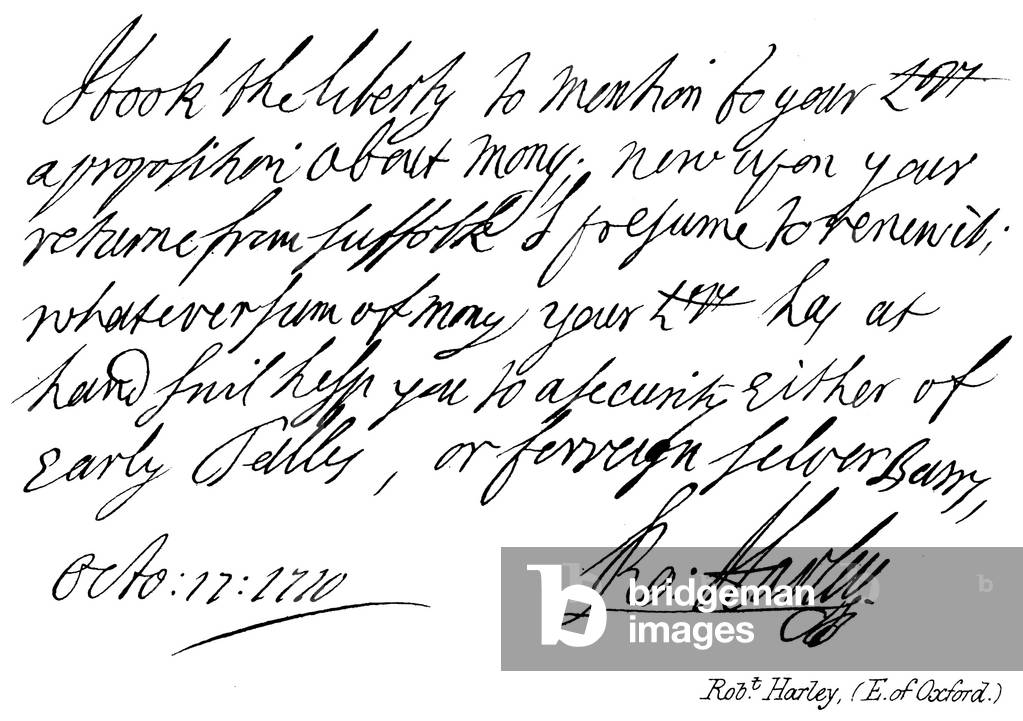 I took the liberty to mention to your Lo:pp
a proposition about mony; now upon your
returne from suffolk I presume to renew it;
whatever sum of mony your Lo:pp has at
hand I wil help you to a security Either of
Early Tallys, or forreign silver Barrs,
Octo: 17: 1710
Ro: Harley
bridgeman
images
Robt. Harley, (E. of Oxford.)